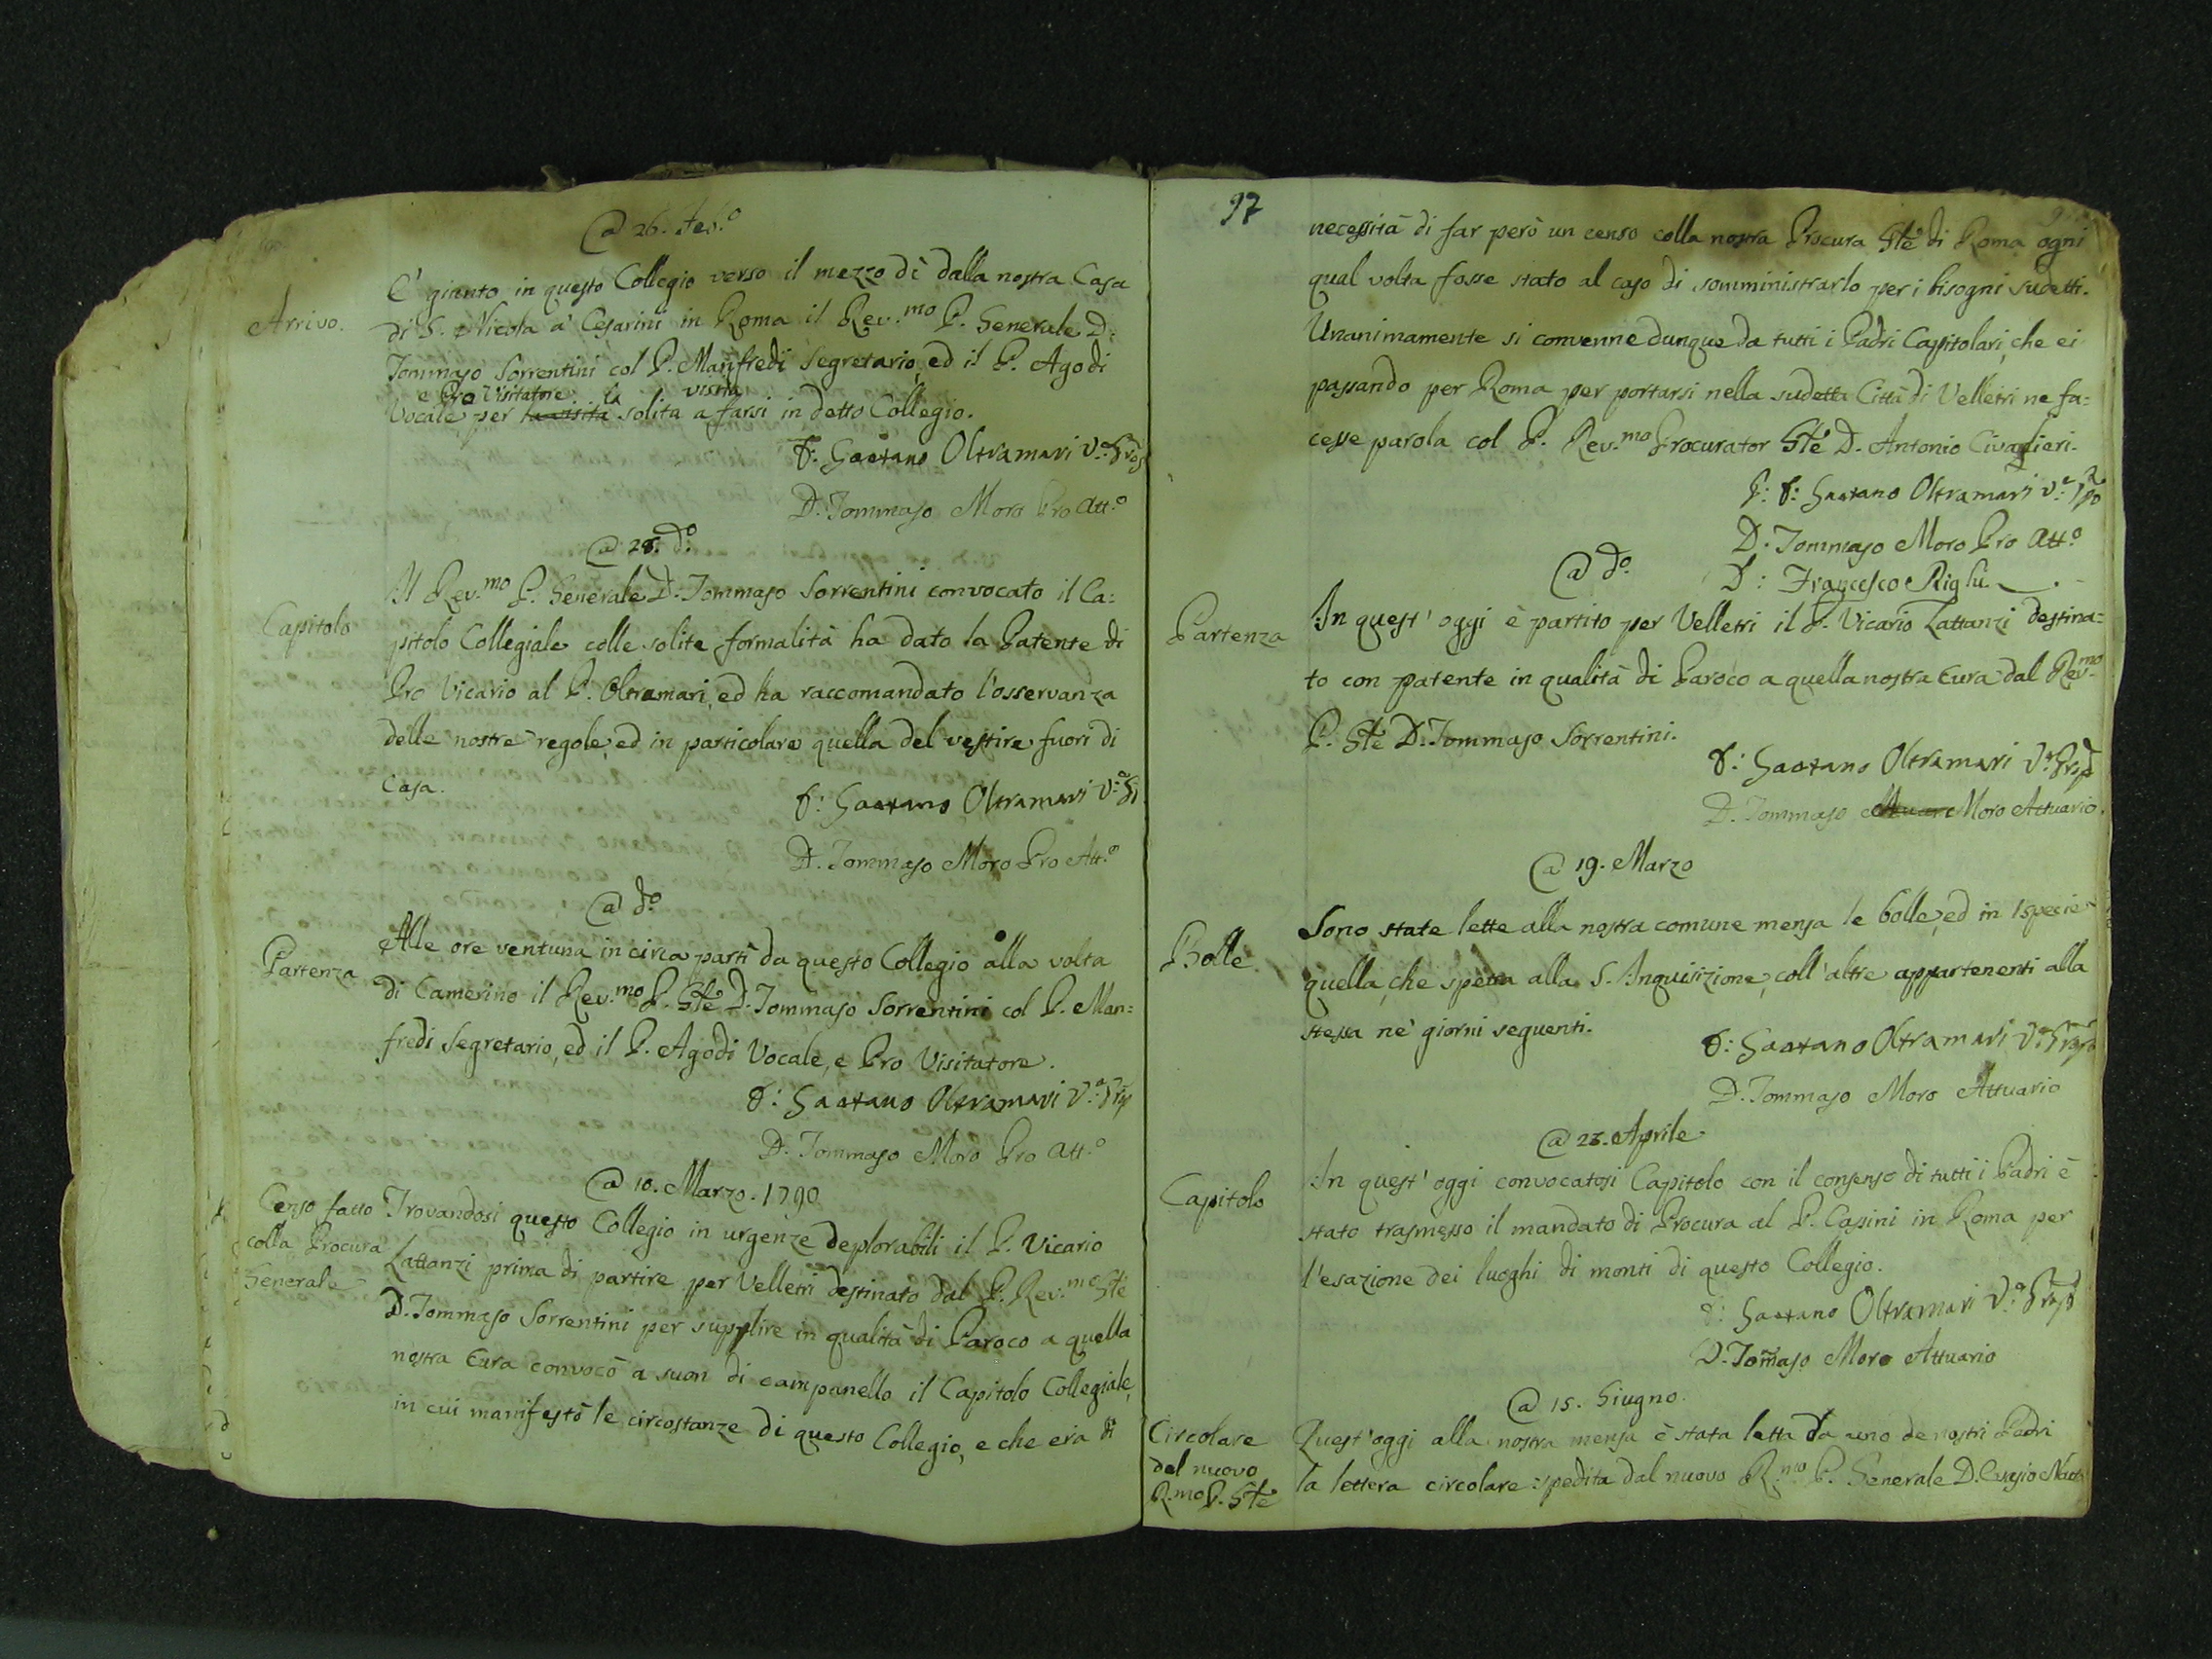 @ 26. Feb.o
Arrivo.
E' giunto in questo Collegio verso il mezzo dì dalla nostra Casa
di S. Nicola a' Cesarini in Roma il Rev.mo P. Generale D.
Tommaso Sorrentini col P. Manfredi Segretario, ed il P. Agodi
e Pro Visitatore la visita
Vocale per la visita solita a farsi in detto Collegio.
D. Gaetano Oltramari V.o Prop
D. Tommaso Moro Pro Att.o
@ 28. d.o
Capitolo
Il Rev.mo P. Generale D. Tommaso Sorrentini convocato il Ca=
pitolo Collegiale colle solite formalità ha dato la Patente di
Pro Vicario al P. Oltramari, ed ha raccomandato l'osservanza
delle nostre regole, ed in particolare quella del vestire fuori di
Casa.
D: Gaetano Oltramari V.o
D. Tommaso Moro Pro Att.o
@ d.o
Partenza
Alle ore ventuna in circa partì da questo Collegio alla volta
di Camerino il Rev.mo P. Gle D. Tommaso Sorrentini col P. Man=
fredi Segretario, ed il P. Agodi Vocale, e Pro Visitatore.
D: Gaetano Oltramari V.o Prop
D. Tommaso Moro Pro Att.o
@ 10. Marzo. 1790
Censo fatto
colla Procura
Generale
Trovandosi questo Collegio in urgenze deplorabili il P. Vicario
Lattanzi prima di partire per Velletri destinato dal P. Rev.mo Gle
D. Tommaso Sorrentini per supplire in qualità di Paroco a quella
nostra Cura convocò a suon di campanello il Capitolo Collegiale,
in cui manifestò le circostanze di questo Collegio, e che era di
97
necessità di far però un censo colla nostra Procura Gle di Roma ogni
qual volta fosse stato al caso di somministrarlo per i bisogni sudetti.
Unanimamente si convenne dunque da tutti i Padri Capitolari, che ei
passando per Roma per portarsi nella sudetta Città di Velletri ne fa=
cesse parola col P. Rev.mo Procurator Gle D. Antonio Civalieri.
D: Gaetano Oltramari V.o
D. Tommaso Moro Pro Att.o
D: Francesco Righi
@ d.o
Partenza
In quest' oggi è partito per Velletri il P. Vicario Lattanzi destina=
to con patente in qualità di Paroco a quella nostra Cura dal Rev.mo
P. Gle D. Tommaso Sorrentini.
D: Gaetano Oltramari V.o Prop
D. Tommaso Moro Attuario.
@ 19. Marzo
Bolle
Sono state lette alla nostra comune mensa le bolle, ed in ispecie
quella, che spetta alla S. Inquisizione, coll' altre appartenenti alla
stessa ne' giorni seguenti.
D: Gaetano Oltramari V.o Prop
D. Tommaso Moro Attuario
@ 23. Aprile
Capitolo
In quest' oggi convocatosi Capitolo con il consenso di tutti i Padri è
stato trasmesso il mandato di Procura al P. Cassini in Roma per
l'esazione dei luoghi di monti di questo Collegio.
D: Gaetano Oltramari V.o Prop
D. Tommaso Moro Attuario
@ 15. Giugno.
Circolare
del nuovo
R.mo P. Gle
Quest'oggi alla nostra mensa è stata letta da uno de nostri Padri
la lettera circolare spedita dal nuovo R.mo P. Generale D.